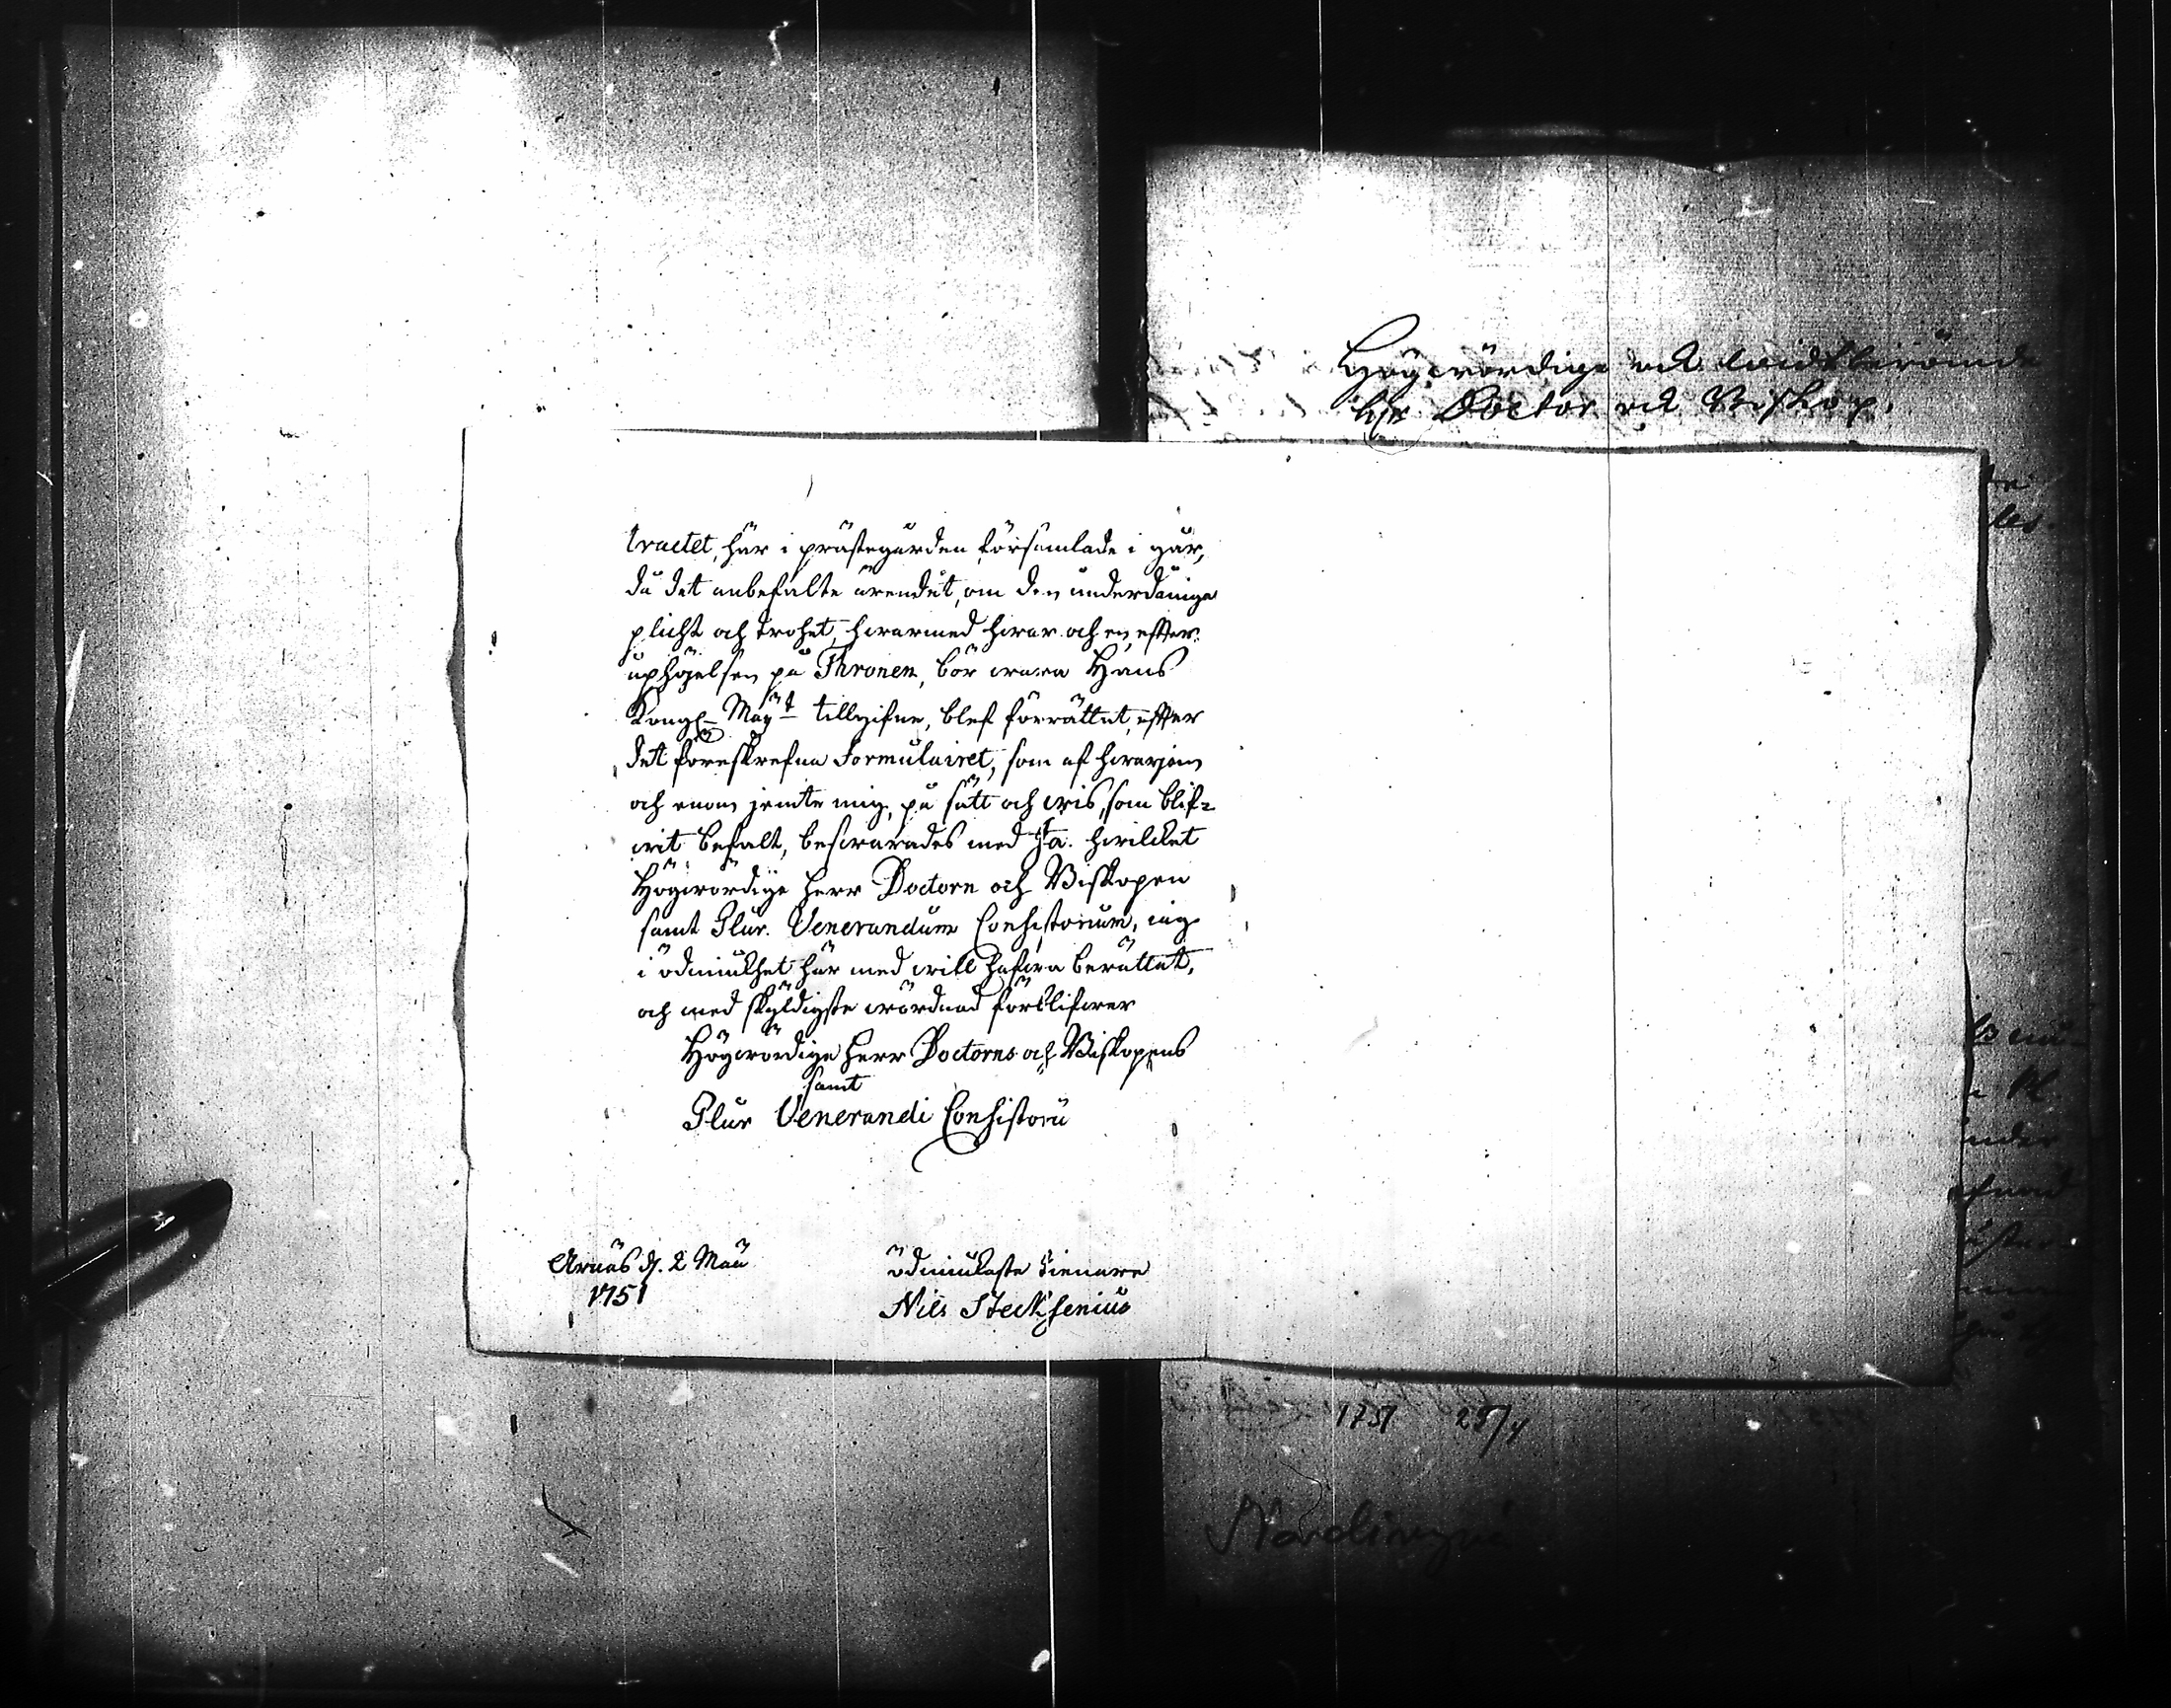 Högwördige och widtberömde
herr Doctor och Biskop.
tractet, här i prästegården församlade i går,
då det anbefalte ärendet, om den underdåniga
plicht och trohet, hwarmed hwar och en, efter
uphöjelsen på Thronen, bör wara Hans
Kongl. Maij:t tillgifne, blef förrättat, efter
det föreskrefna Formulairet, som af hwarjom
och enom jemte mig, på sätt och wis, som blif-
wit befalt, beswarades med Ja. hwilcket
Högwördige herr Doctorn och Biskopen
samt Plur. Venerandum Consistorium, jag
i ödmiukhet här med will hafwa berättat,
och med skyldigste wördnad förblifwer
Högwördige herr Doctorns och Biskopens
samt
Plur Venerandi Consistorii
Arnäs d. 2 Maii
1751
ödmiukaste tienare
Nils Stecksenius
1751 25/4
Nordingrå